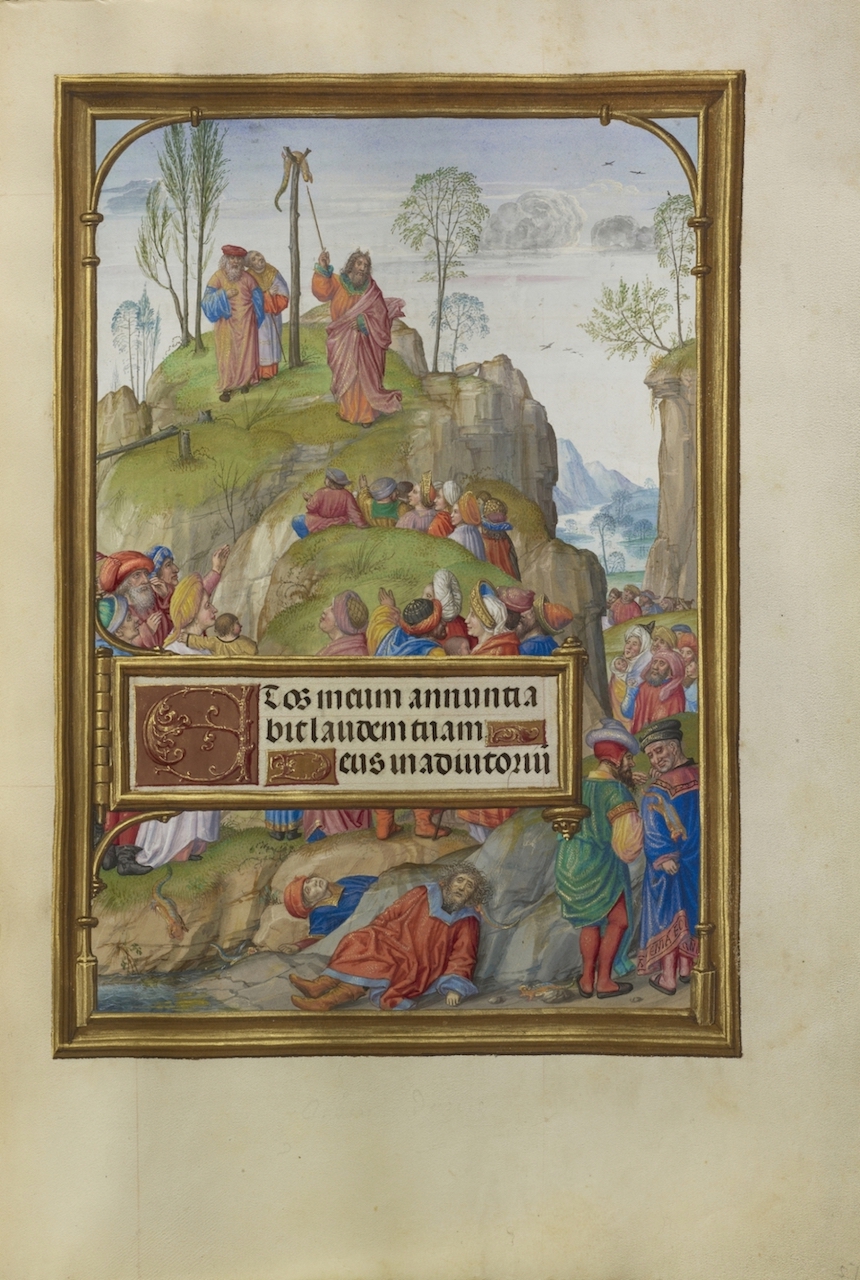 Et os meum annuntia
bit laudem tuam
Deus in adiutoriu